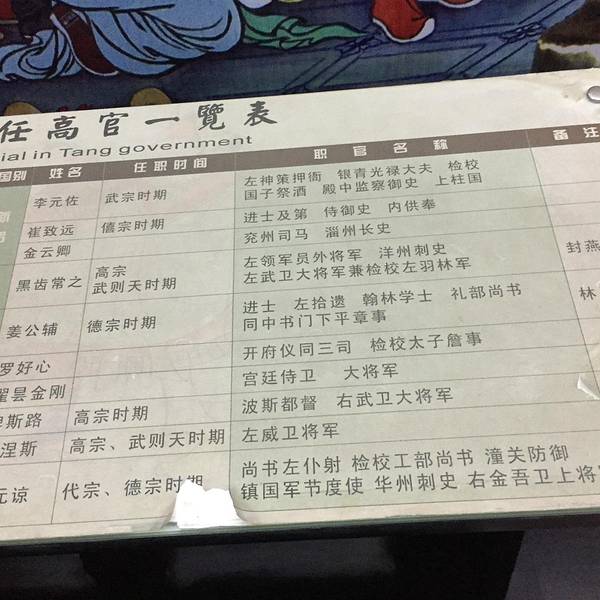 任高官一覽表
ial in Tang government
国别 姓名 任职时间 职官名称 备注
李元佐 武宗时期 左神策押衙 银青光禄大夫 检校
国子祭酒 殿中监察御史 上柱国
崔致远 僖宗时期 进士及第 侍御史 内供奉
金云卿 兖州司马 淄州长史
黑齿常之 高宗
武则天时期 左领军员外将军 洋州刺史
左武卫大将军兼检校左羽林军 封燕
姜公辅 德宗时期 进士 左拾遗 翰林学士 礼部尚书
同中书门下平章事 林
罗好心 开府仪同三司 检校太子詹事
瞿昙金刚 宫廷侍卫 大将军
斯路 高宗时期 波斯都督 右武卫大将军
涅斯 高宗、武则天时期 左威卫将军
元谅 代宗、德宗时期 尚书左仆射 检校工部尚书 潼关防御
镇国军节度使 华州刺史 右金吾卫上将军